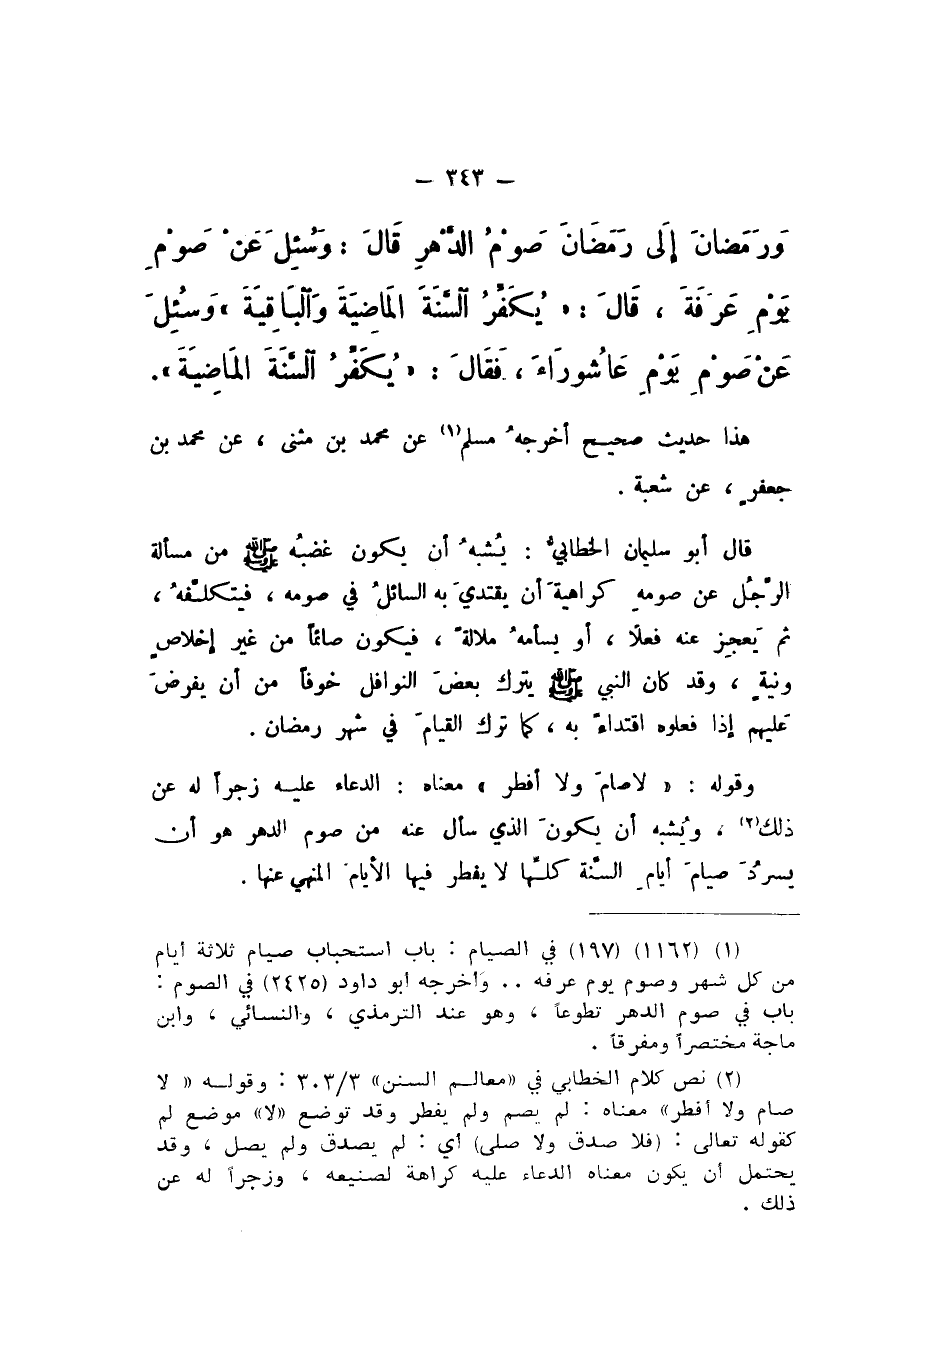 — ٣٤٣ —
وَرَمَضانَ إِلَى رَمَضَانَ صَوْمُ الدَّهْرِ قَالَ : وَسُئِلَ عَنْ صَوْمِ
يَوْمِ عَرَفَةَ ، قَالَ : « يُكَفِّرُ السَّنَةَ المَاضِيَةَ وَالْبَاقِيَةَ » وَسُئِلَ
عَنْ صَوْمِ يَوْمِ عَاشُورَاءَ ، فَقَالَ : « يُكَفِّرُ السَّنَةَ المَاضِيَةَ ».
هذا حديث صحيح أخرجهُ مسلم(١) عن محمد بن مثنى ، عن محمد بن
جعفرٍ ، عن شعبة .
قال أبو سليمان الخطابيُّ : يُشبهُ أن يكون غضبُه ﷺ من مسألة
الرَّجُل عن صومهِ كراهيةَ أن يقتديَ به السائلُ في صومه ، فيتكلَّفهُ ،
ثم يَعجِز عنه فعلًا ، أو يسأمهُ ملالةً ، فيكون صائماً من غير إخلاصٍ
ونيةٍ ، وقد كان النبي ﷺ يترك بعضَ النوافل خوفاً من أن يفرضَ
عَليهم إذا فعلوه اقتداءً به ، كما ترك القيامَ في شهر رمضان .
وقوله : « لا صامَ ولا أفطر » معناه : الدعاء عليه زجراً له عن
ذلك(٢) ، ويُشبه أن يكونَ الذي سأل عنه من صوم الدهر هو أن
يسردُ صيامَ أيامِ السنَّة كلِّها لا يفطر فيها الأيامَ المنهي عنها .
(١) (١١٦٢) (١٩٧) في الصيام : باب استحباب صيام ثلاثة أيام
من كل شهر وصوم يوم عرفه .. وأخرجه أبو داود (٢٤٢٥) في الصوم :
باب في صوم الدهر تطوعاً ، وهو عند الترمذي ، والنسائي ، وابن
ماجة مختصراً ومفرقاً .
(٢) نص كلام الخطابي في «معالم السنن» ٣٠٣/٣ : وقوله « لا
صام ولا أفطر» معناه : لم يصم ولم يفطر وقد توضع «لا» موضع لم
كقوله تعالى : (فلا صدق ولا صلى) أي : لم يصدق ولم يصل ، وقد
يحتمل أن يكون معناه الدعاء عليه كراهة لصنيعه ، وزجراً له عن
ذلك .